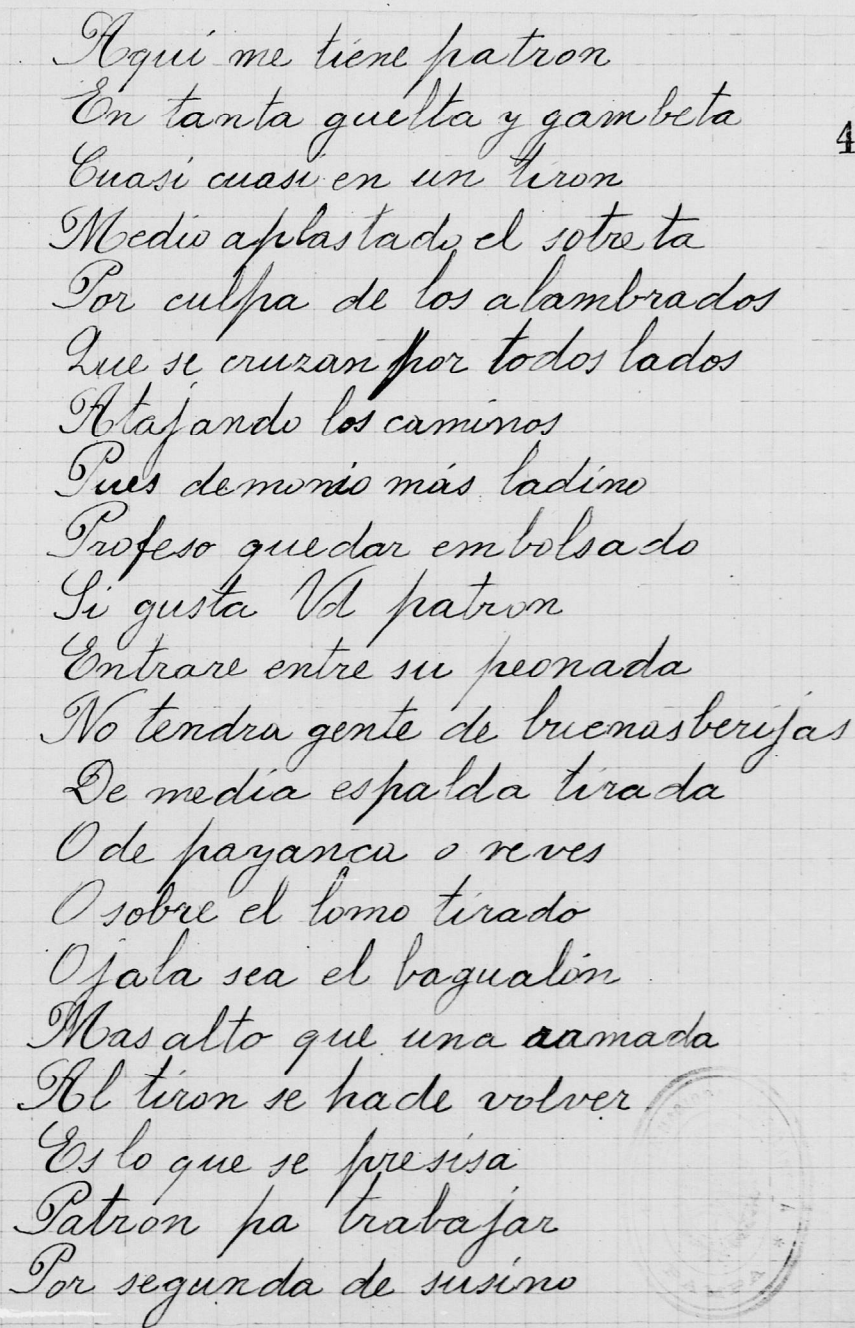 Aqui me tiene patron
En tanta guelta y gambeta
4
Cuasi cuasi en un tiron
Medio aplastado el sotreta
Por culpa de los alambrados
Que se cruzan por todos lados
Atajando los caminos
Pues demonio más ladino
Profeso quedar embolsado
Si gusta Vd patron
Entrare entre su peonada
No tendra gente de buenas berijas
De media espalda tirada
O de payanca o reves
O sobre el lomo tirado
Ojala sea el bagualón
Mas alto que una ramada
Al tiron se ha de volver
Es lo que se presisa
Patron pa trabajar
Por segunda de susino